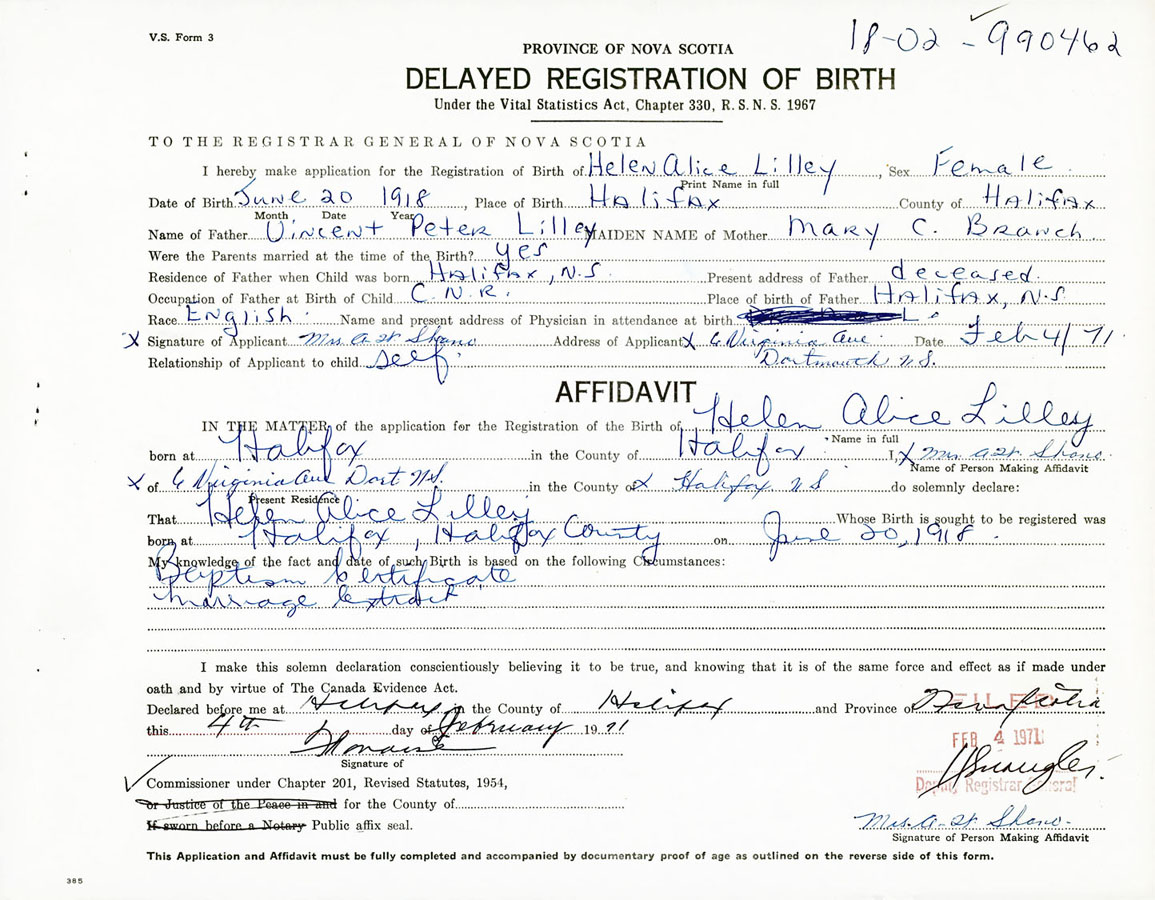 V.S. Form 3
18-02 - 990462
PROVINCE OF NOVA SCOTIA
DELAYED REGISTRATION OF BIRTH
Under the Vital Statistics Act, Chapter 330, R.S.N.S. 1967
TO THE REGISTRAR GENERAL OF NOVA SCOTIA
I hereby make application for the Registration of Birth of Helen Alice Lilley, Sex Female
Print Name in full
Date of Birth June 20 1918, Place of Birth Halifax County of Halifax
Month Date Year
Name of Father Vincent Peter Lilley MAIDEN NAME of Mother Mary C. Branch
Were the Parents married at the time of the Birth? yes
Residence of Father when Child was born Halifax, N.S. Present address of Father deceased.
Occupation of Father at Birth of Child C.N.R. Place of birth of Father Halifax, N.S
Race English Name and present address of Physician in attendance at birth
X Signature of Applicant Mrs. A St Shano Address of Applicant X 6 Virginia Ave Date Feb 4/71
Relationship of Applicant to child self Dartmouth N.S.
AFFIDAVIT
IN THE MATTER of the application for the Registration of the Birth of Helen Alice Lilley
Name in full
born at Halifax in the County of Halifax I, X Mrs. A St. Shano.
Name of Person Making Affidavit
X of 6 Virginia Ave Dart N.S. in the County of X Halifax N S do solemnly declare:
Present Residence
That Helen Alice Lilley Whose Birth is sought to be registered was
born at Halifax, Halifax County on June 20, 1918.
My knowledge of the fact and date of such Birth is based on the following Circumstances:
Baptism Certificate
Marriage Extract
I make this solemn declaration conscientiously believing it to be true, and knowing that it is of the same force and effect as if made under
oath and by virtue of The Canada Evidence Act.
Declared before me at Halifax in the County of Halifax and Province of Nova Scotia
this 4th day of February 1971
FILED
FEB 4 1971
Signature of
Deputy Registrar General
Commissioner under Chapter 201, Revised Statutes, 1954,
or Justice of the Peace in and for the County of
If sworn before a Notary Public affix seal.
Mrs. A. St. Shano.
Signature of Person Making Affidavit
This Application and Affidavit must be fully completed and accompanied by documentary proof of age as outlined on the reverse side of this form.
385